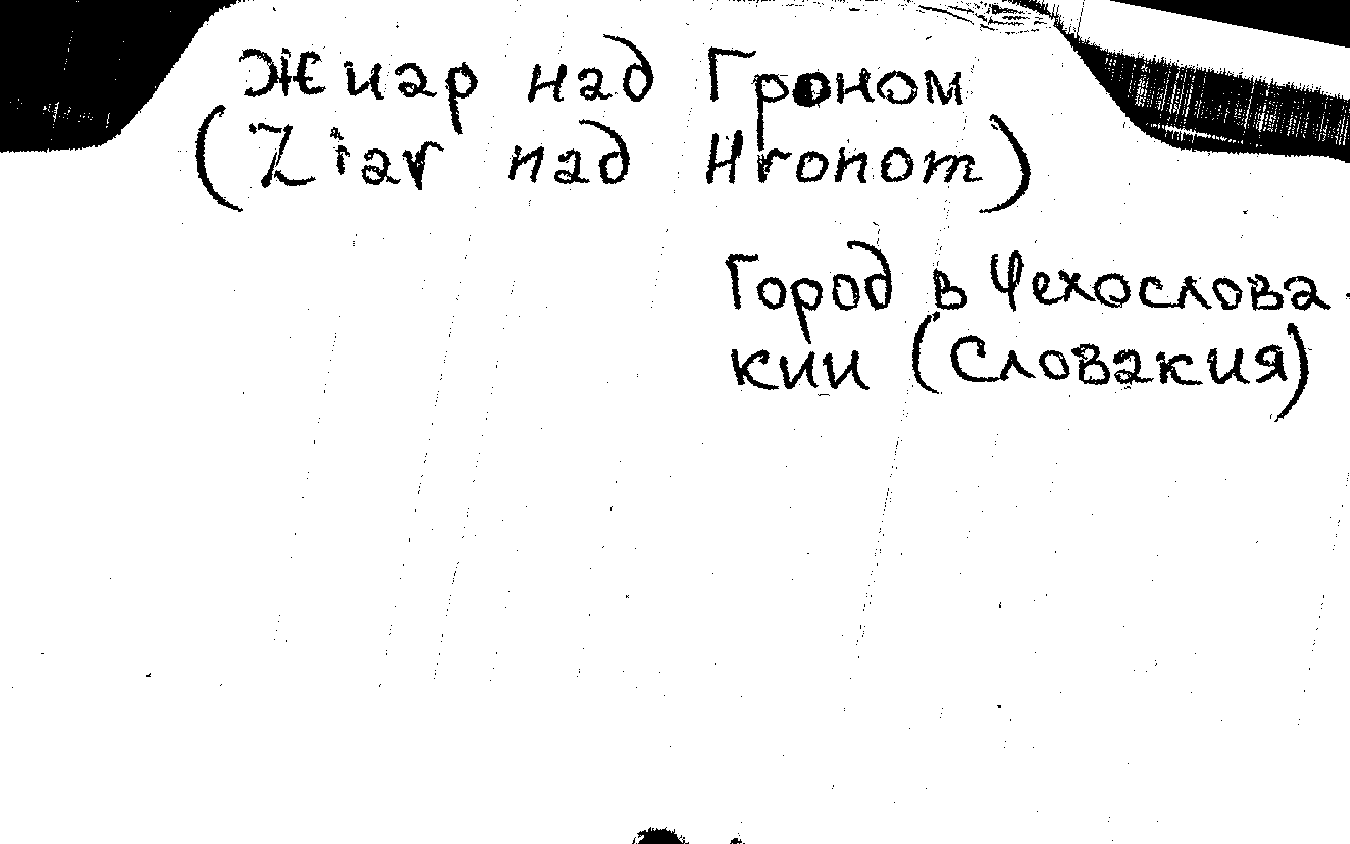 Жиар над Гроном
(Ziar nad Hronom)
Город в Чехослова-
кии (Словакия)